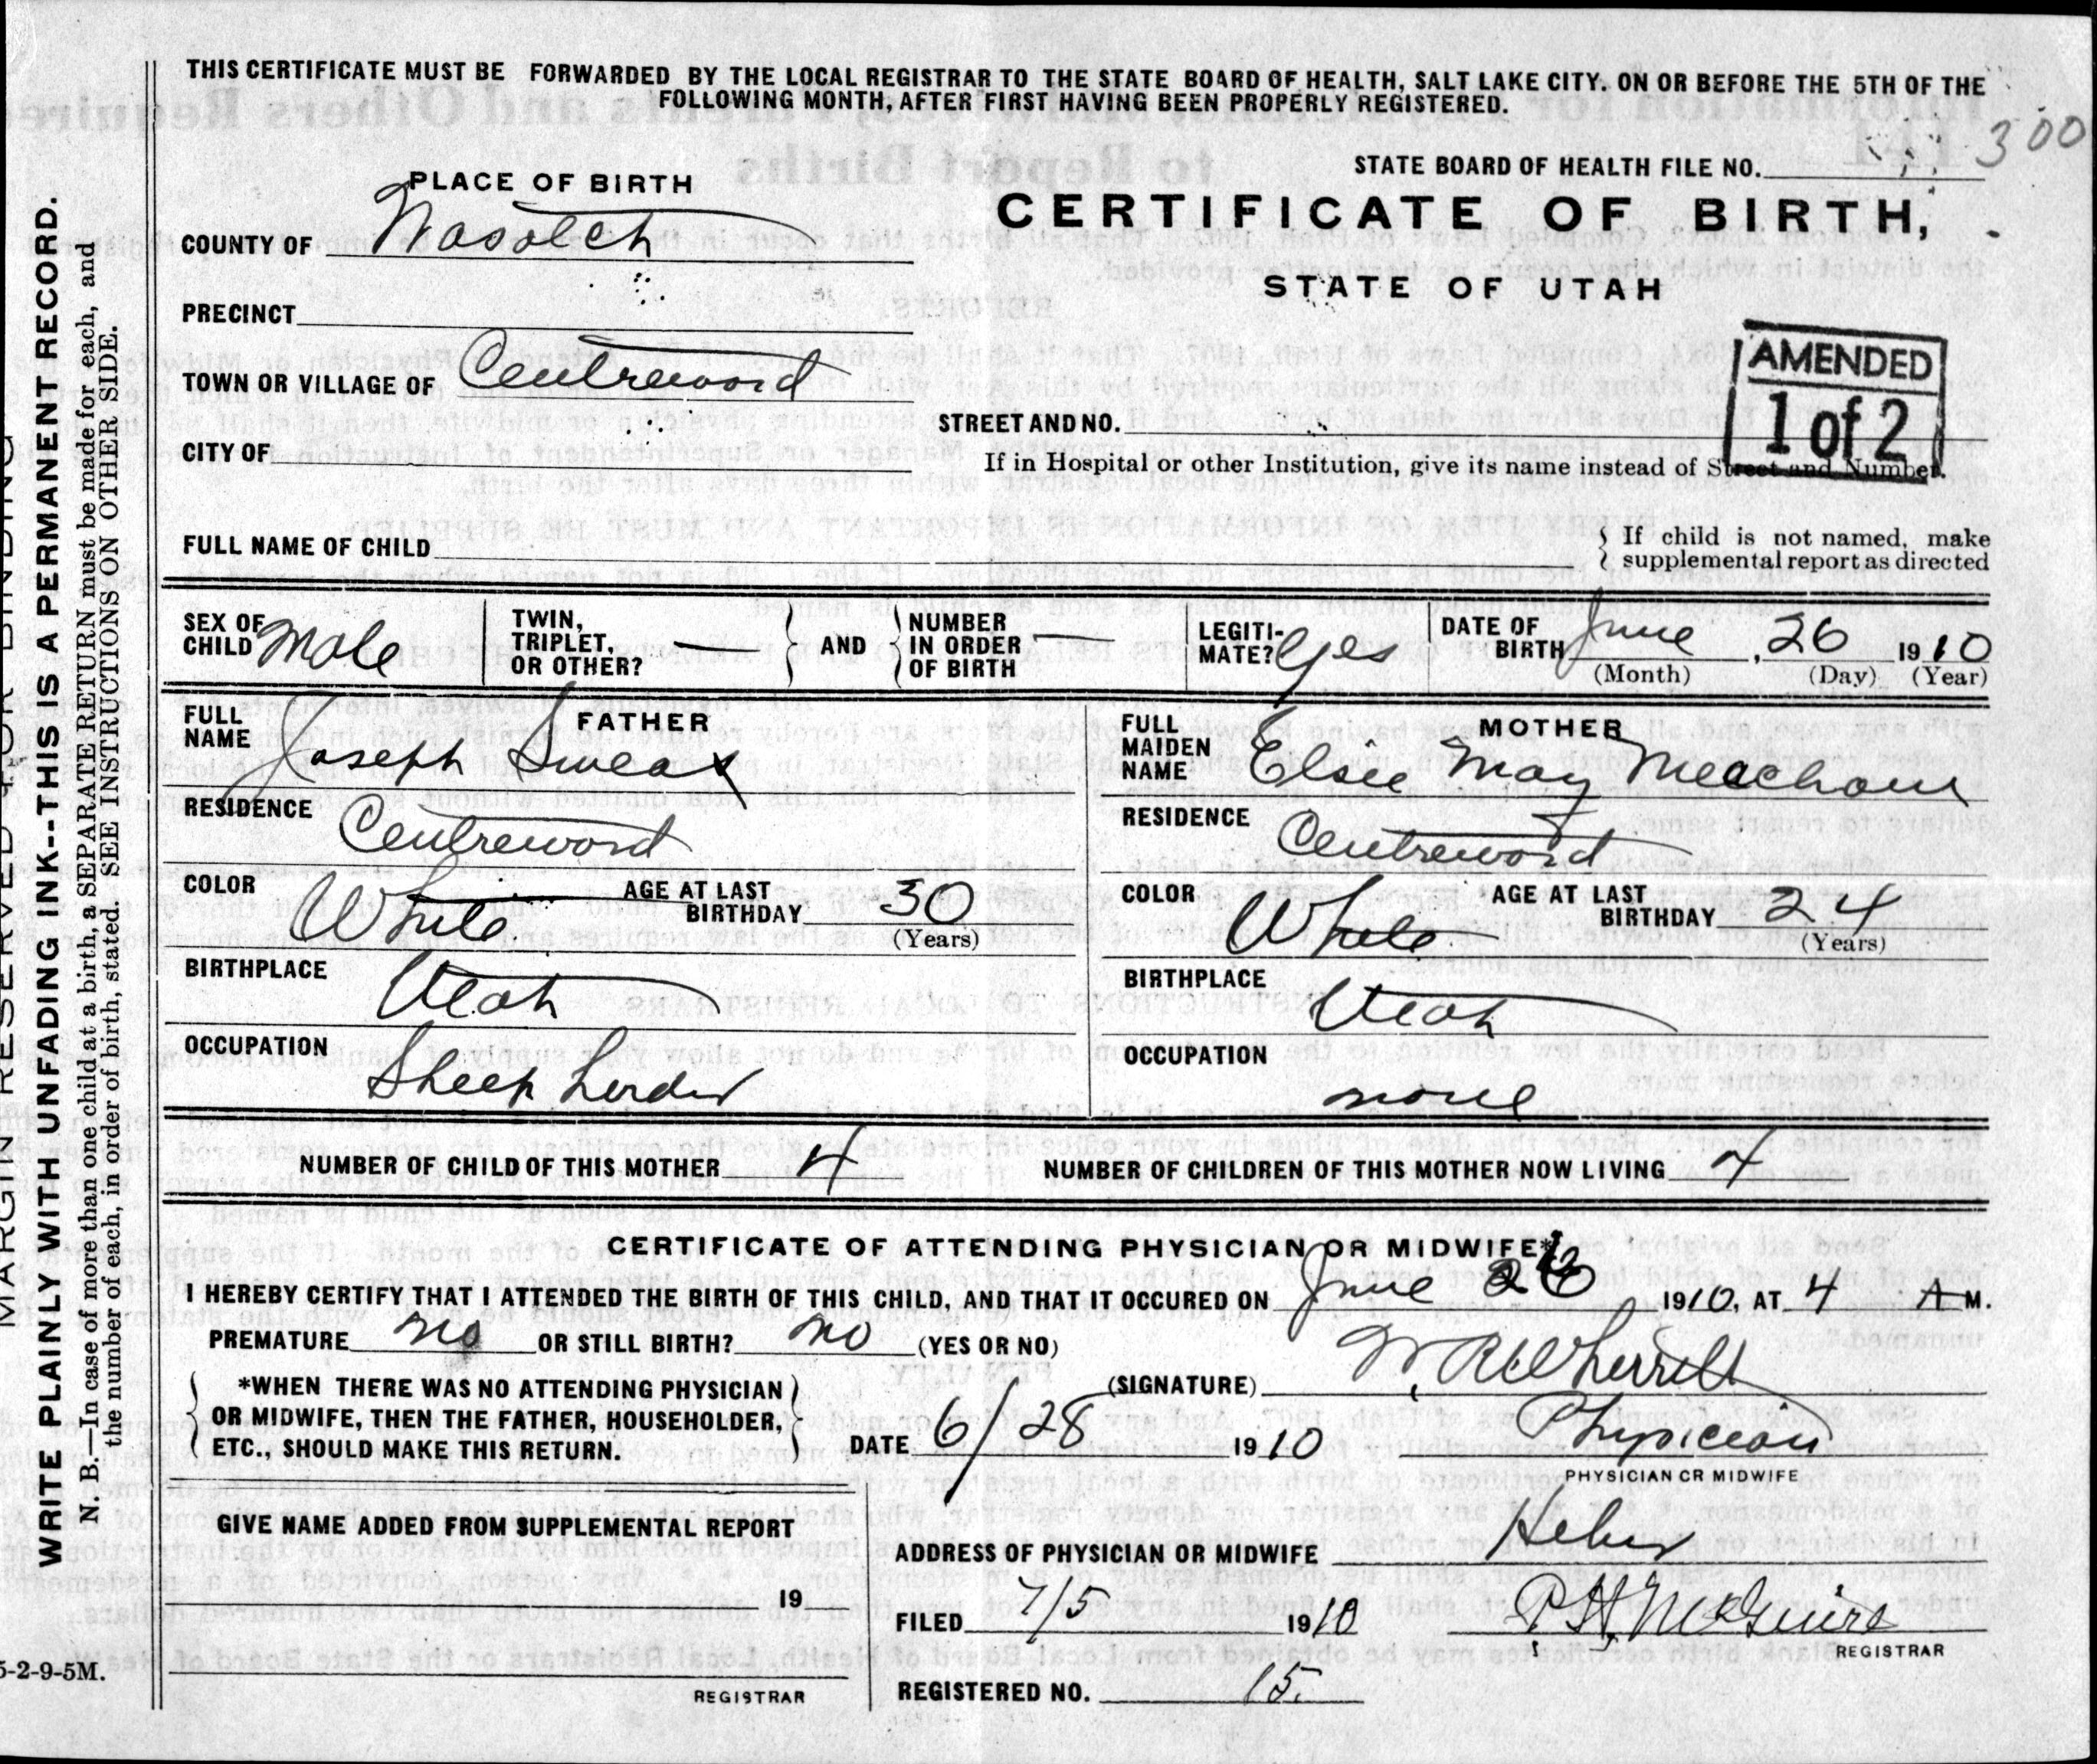 THIS CERTIFICATE MUST BE FORWARDED BY THE LOCAL REGISTRAR TO THE STATE BOARD OF HEALTH, SALT LAKE CITY. ON OR BEFORE THE 5TH OF THE
FOLLOWING MONTH, AFTER FIRST HAVING BEEN PROPERLY REGISTERED.
300
STATE BOARD OF HEALTH FILE NO.
PLACE OF BIRTH
CERTIFICATE OF BIRTH,
STATE OF UTAH
COUNTY OF Wasatch
PRECINCT
TOWN OR VILLAGE OF Centreward
CITY OF
AMENDED
1 of 2
STREET AND NO.
If in Hospital or other Institution, give its name instead of Street and Number.
FULL NAME OF CHILD
If child is not named, make
supplemental report as directed
SEX OF CHILD Male
TWIN, TRIPLET, OR OTHER? —
AND
NUMBER IN ORDER OF BIRTH —
LEGITI-MATE? Yes
DATE OF BIRTH June, 26 1910
(Month) (Day) (Year)
FATHER
FULL NAME Joseph Sweat
RESIDENCE Centreward
COLOR White AGE AT LAST BIRTHDAY 30
(Years)
BIRTHPLACE Utah
OCCUPATION Sheep herder
MOTHER
FULL MAIDEN NAME Elsie May Meacham
RESIDENCE Centreward
COLOR White AGE AT LAST BIRTHDAY 24
(Years)
BIRTHPLACE Utah
OCCUPATION none
NUMBER OF CHILD OF THIS MOTHER 4 NUMBER OF CHILDREN OF THIS MOTHER NOW LIVING 4
CERTIFICATE OF ATTENDING PHYSICIAN OR MIDWIFE*
I HEREBY CERTIFY THAT I ATTENDED THE BIRTH OF THIS CHILD, AND THAT IT OCCURED ON June 26 1910, AT 4 A M.
PREMATURE no OR STILL BIRTH? no (YES OR NO)
*WHEN THERE WAS NO ATTENDING PHYSICIAN
OR MIDWIFE, THEN THE FATHER, HOUSEHOLDER,
ETC., SHOULD MAKE THIS RETURN.
(SIGNATURE) W. R. Wherritt
DATE 6/28 1910 Physician
PHYSICIAN OR MIDWIFE
GIVE NAME ADDED FROM SUPPLEMENTAL REPORT
19
REGISTRAR
ADDRESS OF PHYSICIAN OR MIDWIFE Heber
FILED 7/5 1910 P. H. McGuire
REGISTRAR
REGISTERED NO. 15.
MARGIN RESERVED FOR BINDING
WRITE PLAINLY WITH UNFADING INK--THIS IS A PERMANENT RECORD.
N. B.—In case of more than one child at a birth, a SEPARATE RETURN must be made for each, and
the number of each, in order of birth, stated. SEE INSTRUCTIONS ON OTHER SIDE.
5-2-9-5M.